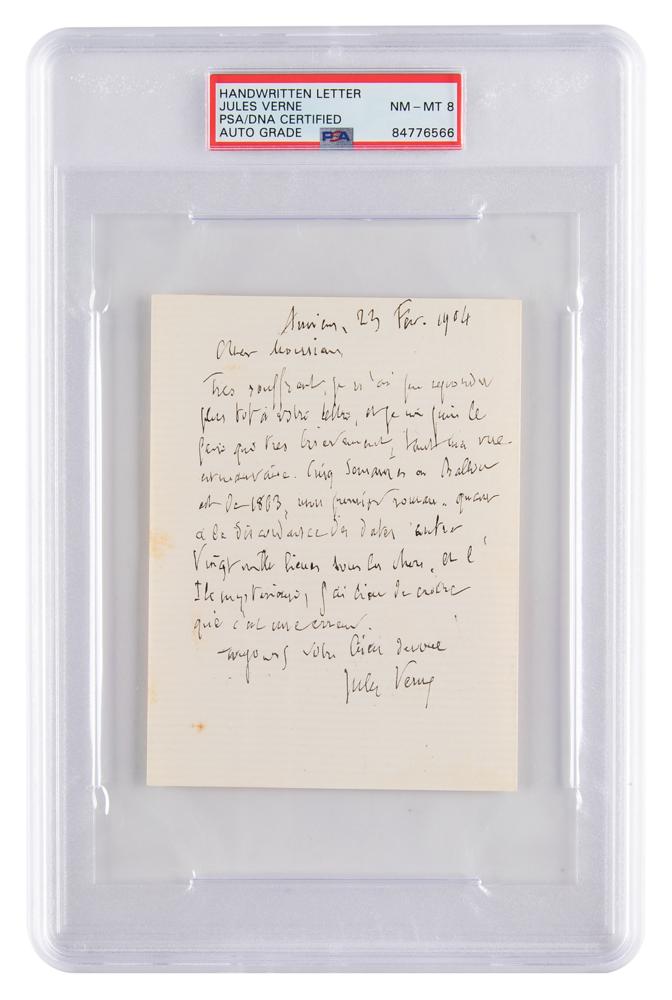 HANDWRITTEN LETTER
JULES VERNE NM – MT 8
PSA/DNA CERTIFIED
AUTO GRADE PSA 84776566
Amiens, 23 Fev. 1904
Cher Monsieur,
Très souffrant, je n'ai pu répondre
plus tot à votre lettre, et je ne puis le
faire que très brièvement, tant ma vue
est mauvaise. Cinq Semaines en Ballon
est de 1863, mon premier roman. quant
à la discordance des dates entre
Vingt mille lieues sous les Mers, et l'
Ile mysterieuse, j'ai lieu de croire
que c'est une erreur.
toujours votre bien devoué
Jules Verne